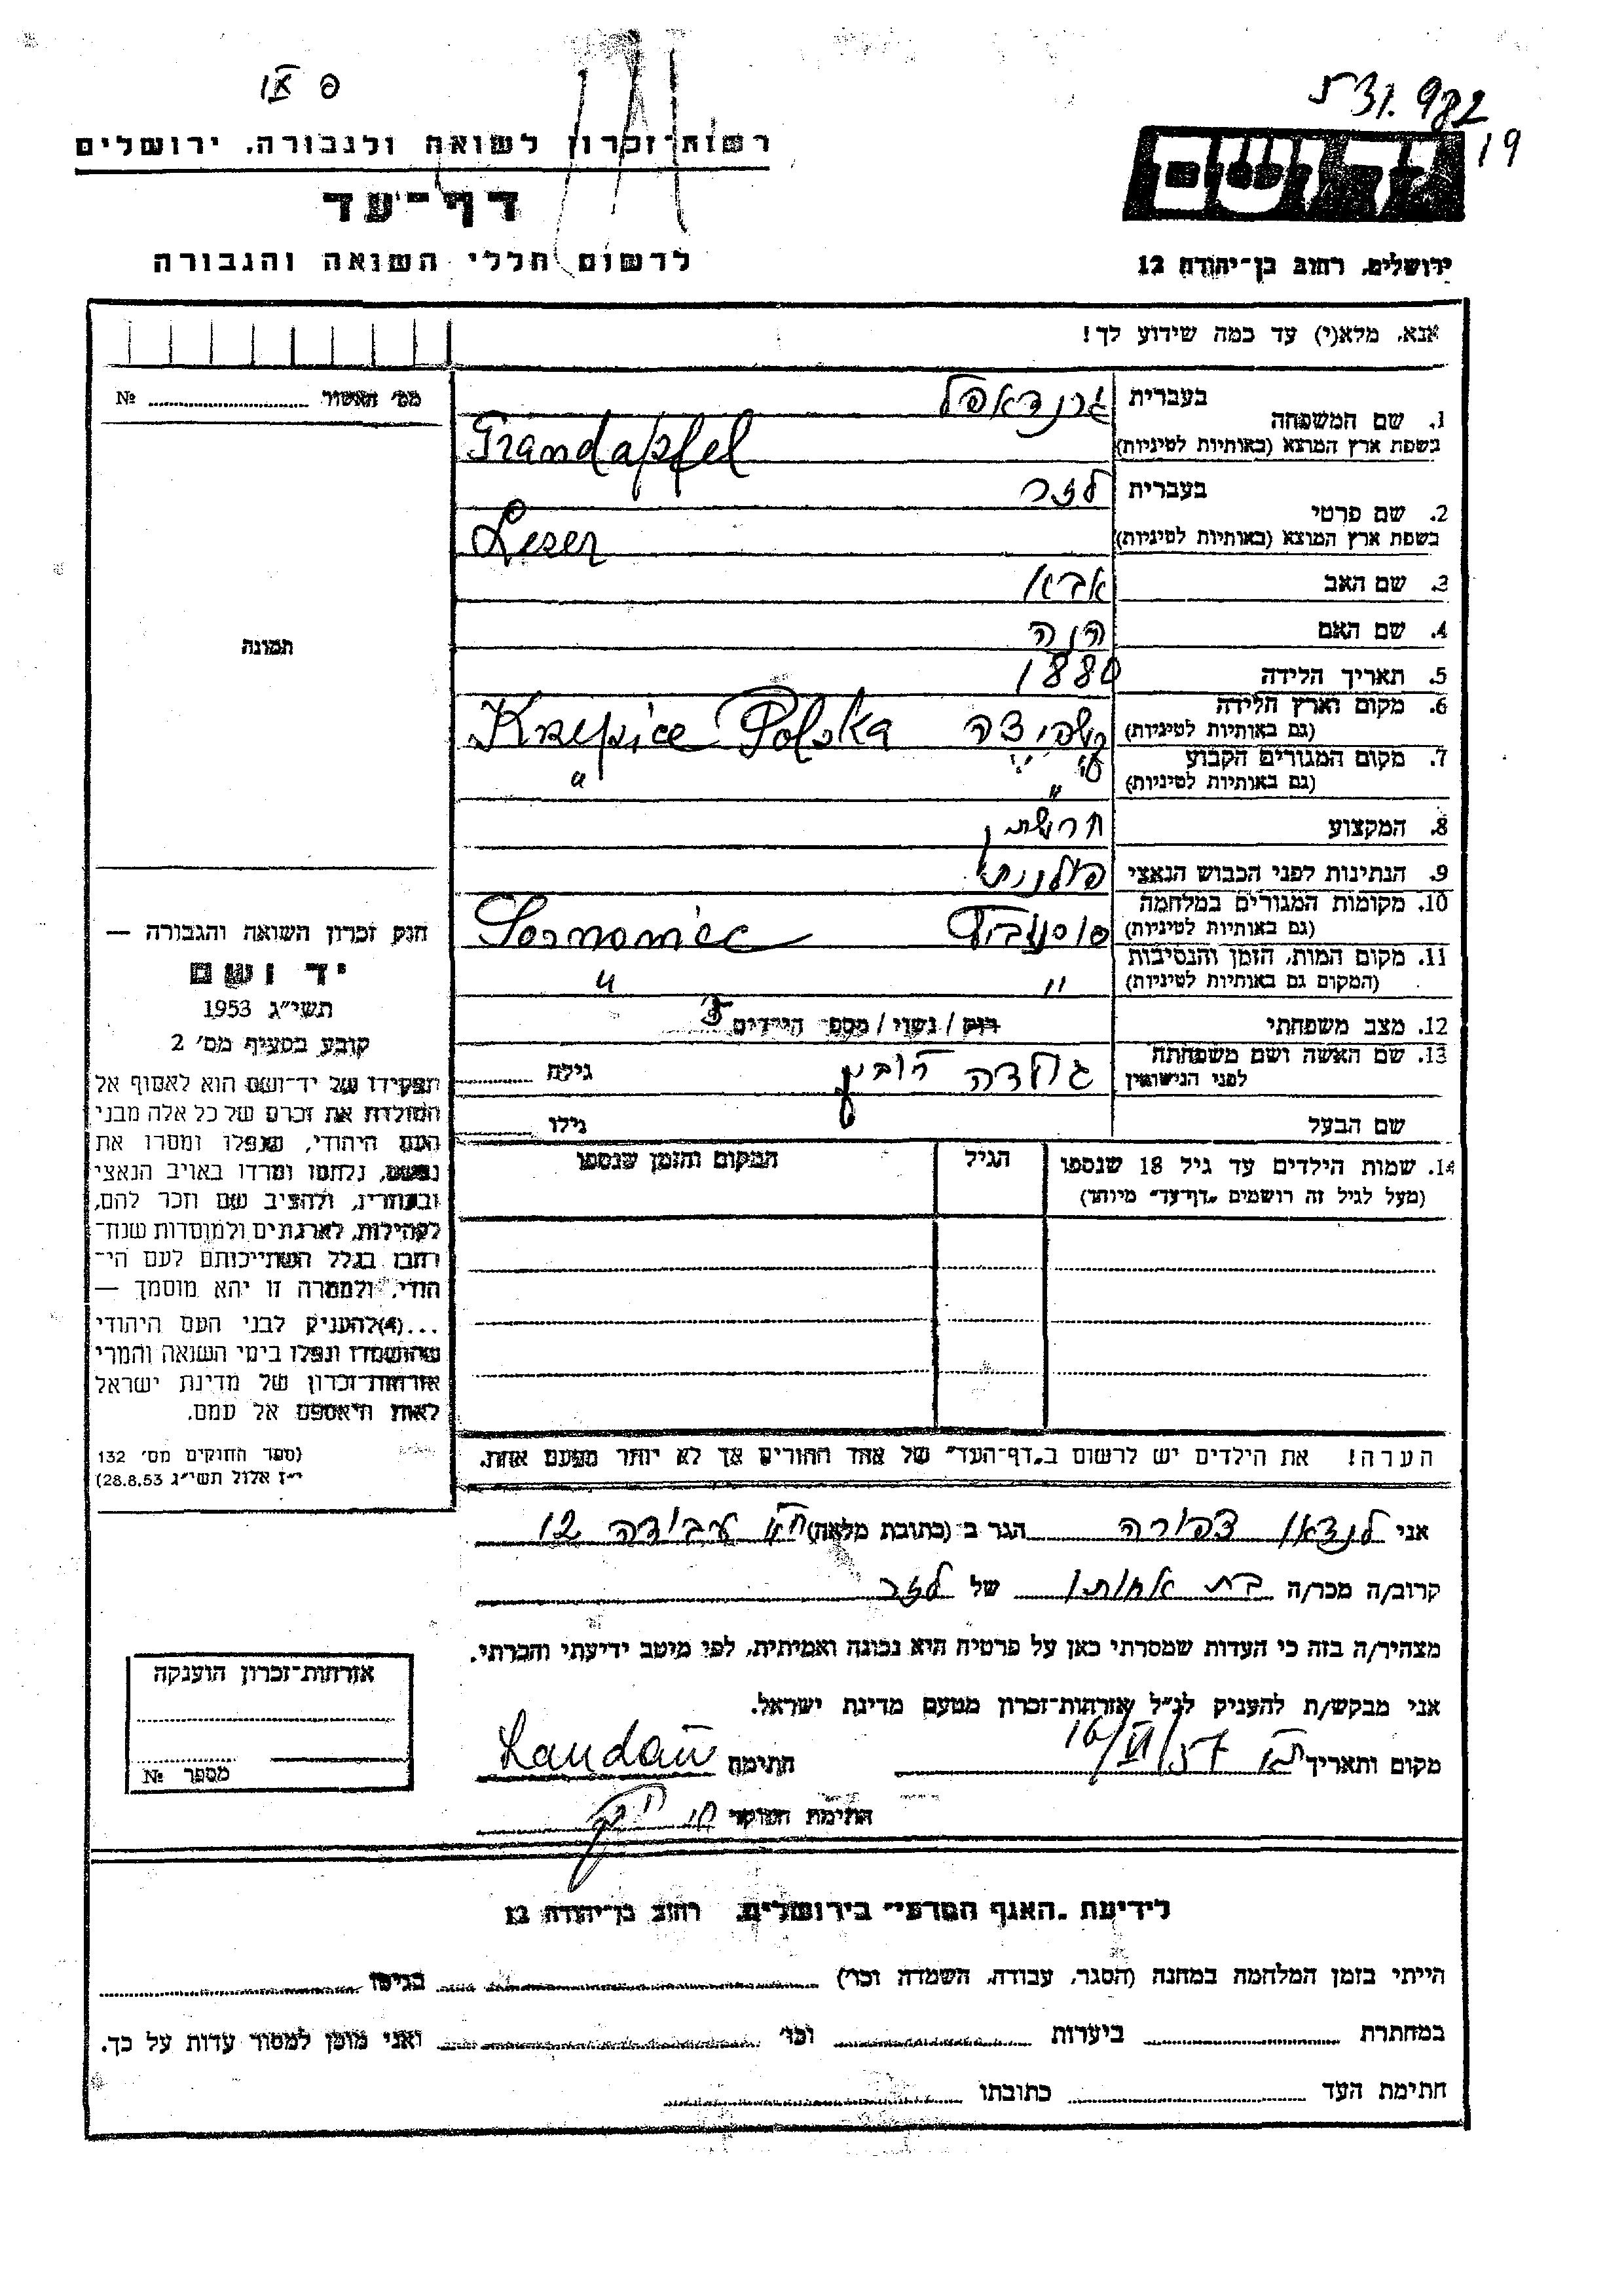 פ אx
531.982
19
רשות-זכרון לשואה ולגבורה, ירושלים
דף-עד
לרשום חללי השואה והגבורה
יד ושם
ירושלים, רחוב בן-יהודה 12
אנא, מלא(י) עד כמה שידוע לך!
מס' האשור № 
1. שם המשפחה בעברית גרנדאפל
בשפת ארץ המוצא (באותיות לטיניות) Grandapfel
2. שם פרטי בעברית לזר
בשפת ארץ המוצא (באותיות לטיניות) Leser
3. שם האב אבא
4. שם האם
5. תאריך הלידה 1880
6. מקום וארץ הלידה
(גם באותיות לטיניות) קשפיצה Krzepice Polska
7. מקום המגורים הקבוע
(גם באותיות לטיניות) " "
8. המקצוע חרושתן
9. הנתינות לפני הכבוש הנאצי פולנית
10. מקומות המגורים במלחמה
(גם באותיות לטיניות) סוסנוביץ Sosnowiec
11. מקום המות, הזמן והנסיבות
(המקום גם באותיות לטיניות) " "
12. מצב משפחתי רוק / נשוי / מספר הילדים 3
13. שם האשה ושם משפחתה
לפני הנישואין גולדה רובין גילה
שם הבעל גילו
14. שמות הילדים עד גיל 18 שנספו הגיל המקום והזמן שנספו
(מעל לגיל זה רושמים "דף-עד" מיוחד)
הערה! את הילדים יש לרשום ב"דף-העד" של אחד ההורים אך לא יותר מפעם אחת.
תמונה
חוק זכרון השואה והגבורה —
יד ושם
תשי"ג 1953
קובע בסעיף מס' 2
תפקידו של יד-ושם הוא לאסוף אל
המולדת את זכרם של כל אלה מבני
העם היהודי, שנפלו ומסרו את
נפשם, נלחמו ומרדו באויב הנאצי
ובעוזריו, ולהציב שם וזכר להם,
לקהילות, לארגונים ולמוסדות שנח-
רבו בגלל השתייכותם לעם הי-
הודי, ולמטרה זו יהא מוסמך —
...(4) להעניק לבני העם היהודי
שהושמדו ונפלו בימי השואה והמרי
אזרחות-זכרון של מדינת ישראל
לאות היאספם אל עמם.
(ספר החוקים מס' 132
י"ז אלול תשי"ג 28.8.53)
אני לנדאו צפורה הגר ב (כתובת מלאה) ת"א עבודה 12
קרוב/ה מכר/ה בת אחותו של לזר
מצהיר/ה בזה כי העדות שמסרתי כאן על פרטיה היא נכונה ואמיתית, לפי מיטב ידיעתי והכרתי.
אני מבקש/ת להעניק לנ"ל אזרחות-זכרון מטעם מדינת ישראל.
מקום ותאריך ת"א 16/VI/57 חתימה Landau
חתימת הפוקד
אזרחות-זכרון הוענקה
מספר №
לידיעת "האגף המדעי" בירושלים, רחוב בן-יהודה 12
הייתי בזמן המלחמה במחנה (הסגר, עבודה, השמדה וכו') בגיטו
במחתרת ביערות וכו' ואני מוכן למסור עדות על כך.
חתימת העד כתובתו